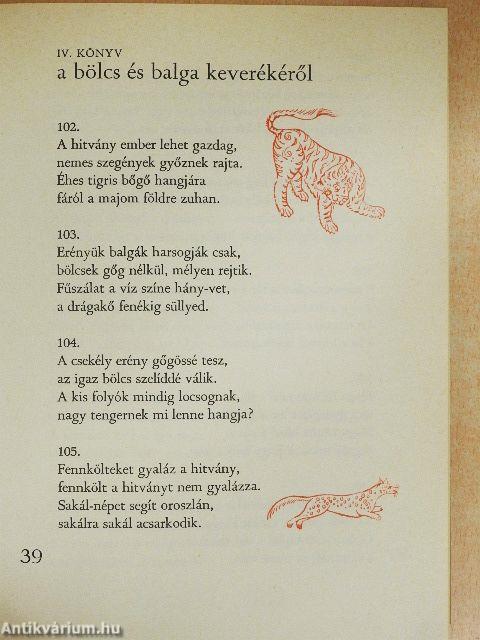 IV. KÖNYV
a bölcs és balga keverékéről
102.
A hitvány ember lehet gazdag,
nemes szegények győznek rajta.
Éhes tigris bőgő hangjára
fáról a majom földre zuhan.
103.
Erényük balgák harsogják csak,
bölcsek gőg nélkül, mélyen rejtik.
Fűszálat a víz színe hány-vet,
a drágakő fenékig süllyed.
104.
A csekély erény gőgössé tesz,
az igaz bölcs szelíddé válik.
A kis folyók mindig locsognak,
nagy tengernek mi lenne hangja?
105.
Fennkölteket gyaláz a hitvány,
fennkölt a hitványt nem gyalázza.
Sakál-népet segít oroszlán,
sakálra sakál acsarkodik.
39
Antikvárium.hu